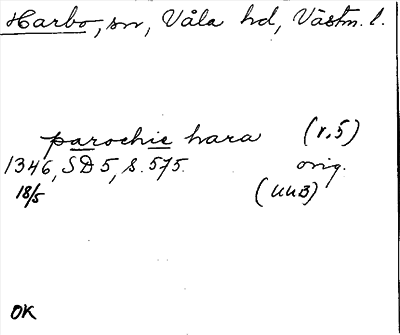 Harbo, sn, Våla hd, Västm. l.
parochie hara (r. 5)
1346, SD 5, s. 575. orig.
18/5 (UUB)
OK